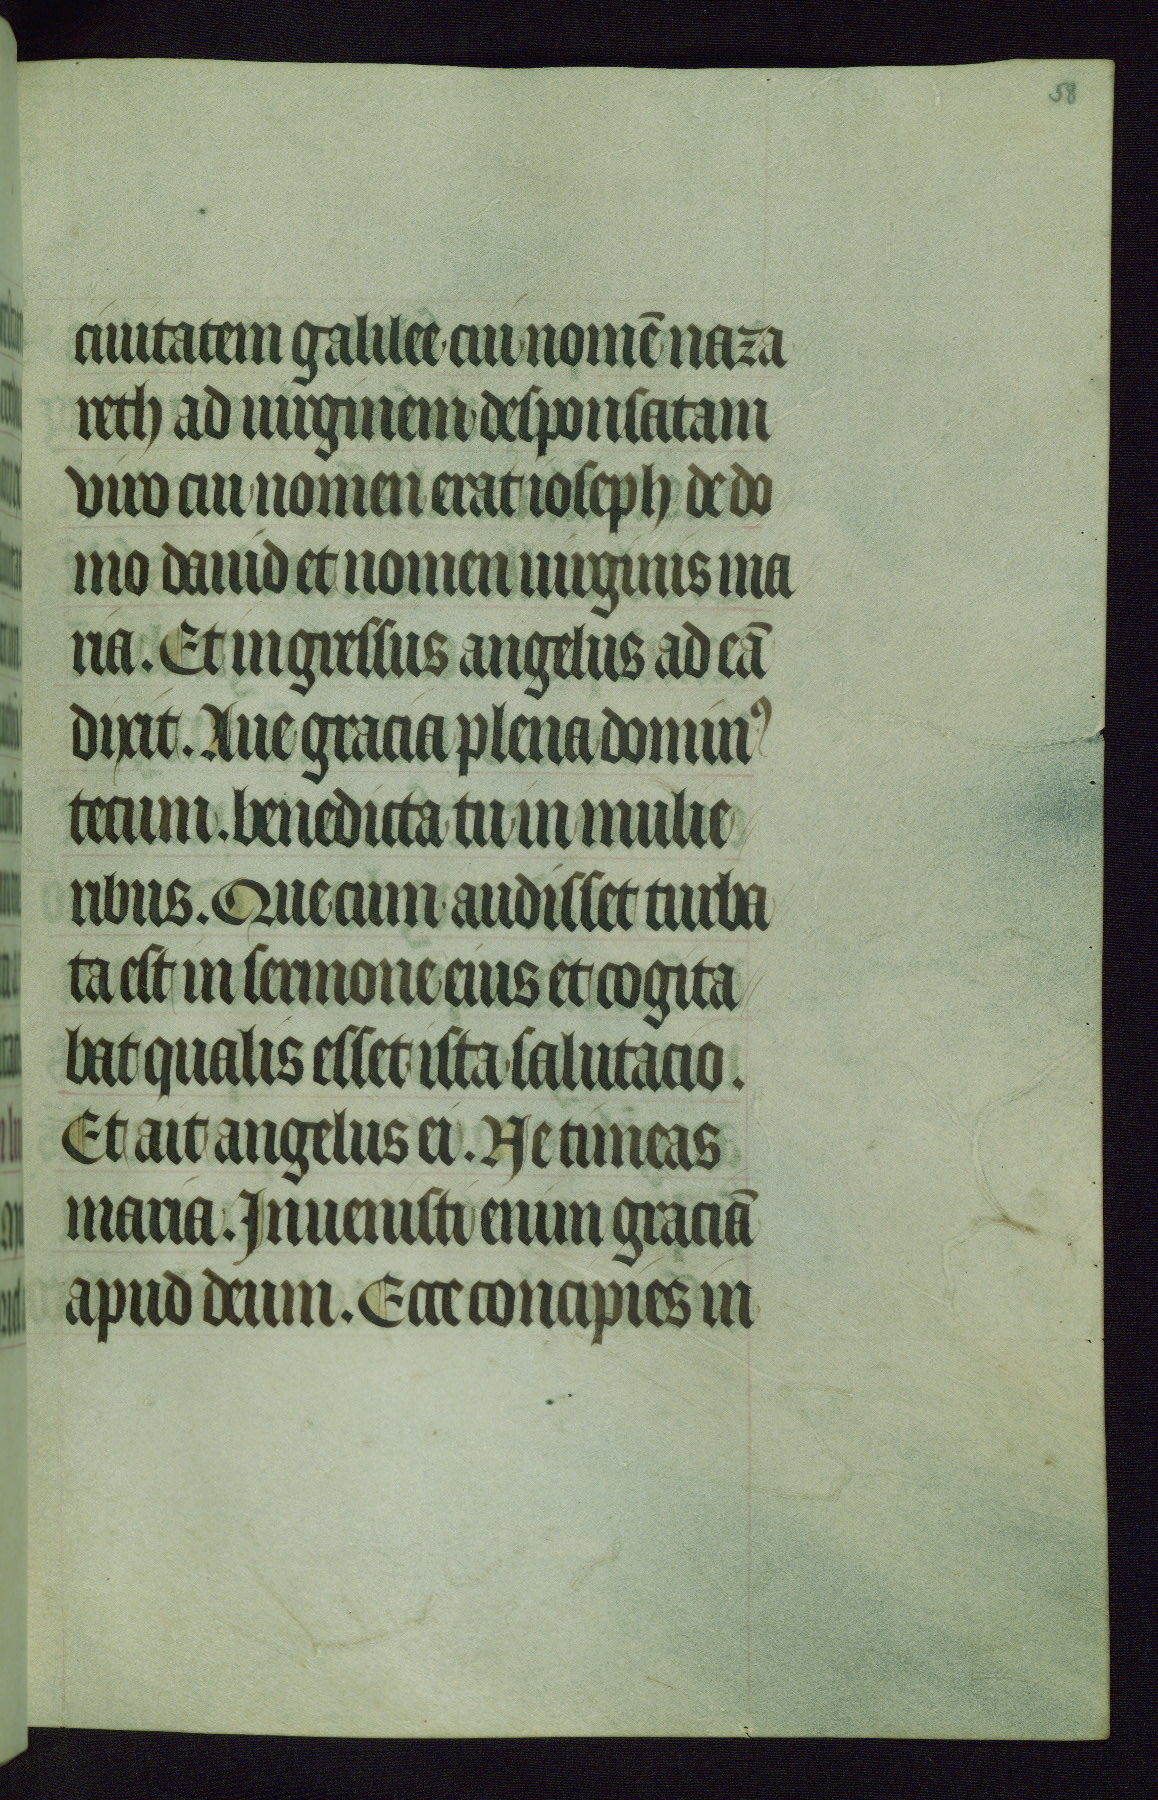 58
ciuitatem galilee cui nomē naza
reth ad uirginem desponsatam
viro cui nomen erat ioseph de do
mo dauid et nomen uirginis ma
ria. Et ingressus angelus ad eā
dixit. Aue gracia plena dominꝰ
tecum. benedicta tu in mulie
ribus. Que cum audisset turba
ta est in sermone eius et cogita
bat qualis esset ista salutacio.
Et ait angelus ei. Ne timeas
maria. Inuenisti enim graciā
apud deum. Ecce concipies in